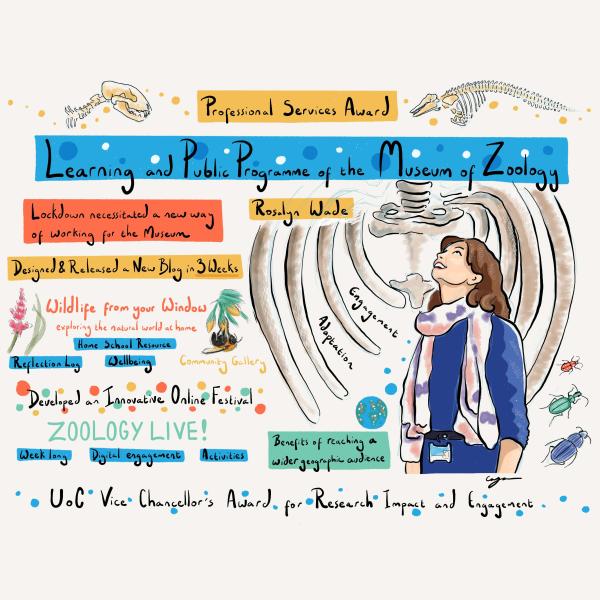 Professional Services Award
Learning and Public Programme of the Museum of Zoology
Lockdown necessitated a new way
of working for the Museum
Rosalyn Wade
Designed & Released a New Blog in 3 Weeks
Wildlife from your Window
exploring the natural world at home
Home School Resource
Reflection Log
Wellbeing
Community Gallery
Engagement
Adaptation
Developed an Innovative Online Festival
ZOOLOGY LIVE!
Week long
Digital engagement
Activities
Benefits of reaching a
wider geographic audience
UoC Vice Chancellor's Award for Research Impact and Engagement